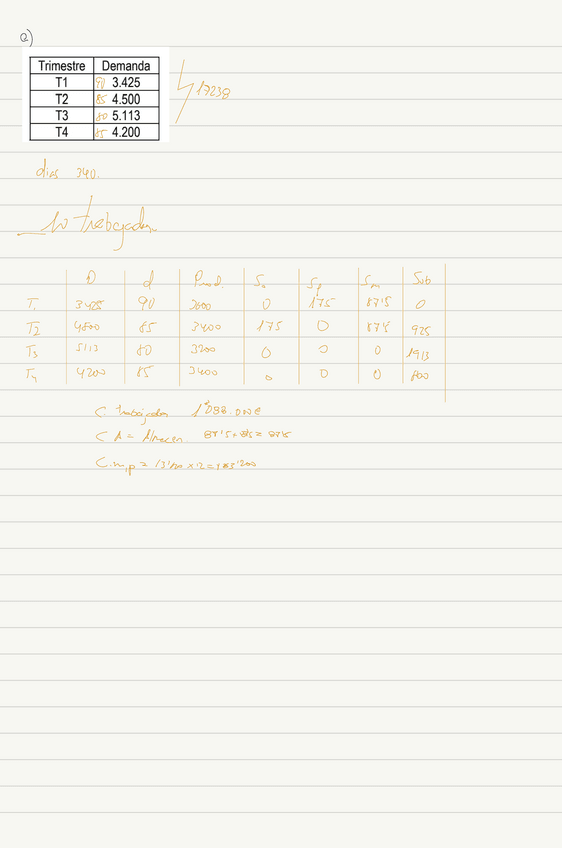 a)
Trimestre Demanda
T1 90 3.425
T2 85 4.500
T3 80 5.113
T4 85 4.200
17238
dias 340.
10 trabajadores
D d Prod. So Sf Sm Sub
T1 3425 90 3600 0 175 87'5 0
T2 4500 85 3400 175 0 87'5 925
T3 5113 80 3200 0 0 0 1913
T4 4200 85 3400 0 0 0 800
C. trabajador 1'088.000€
C A = Almacen.